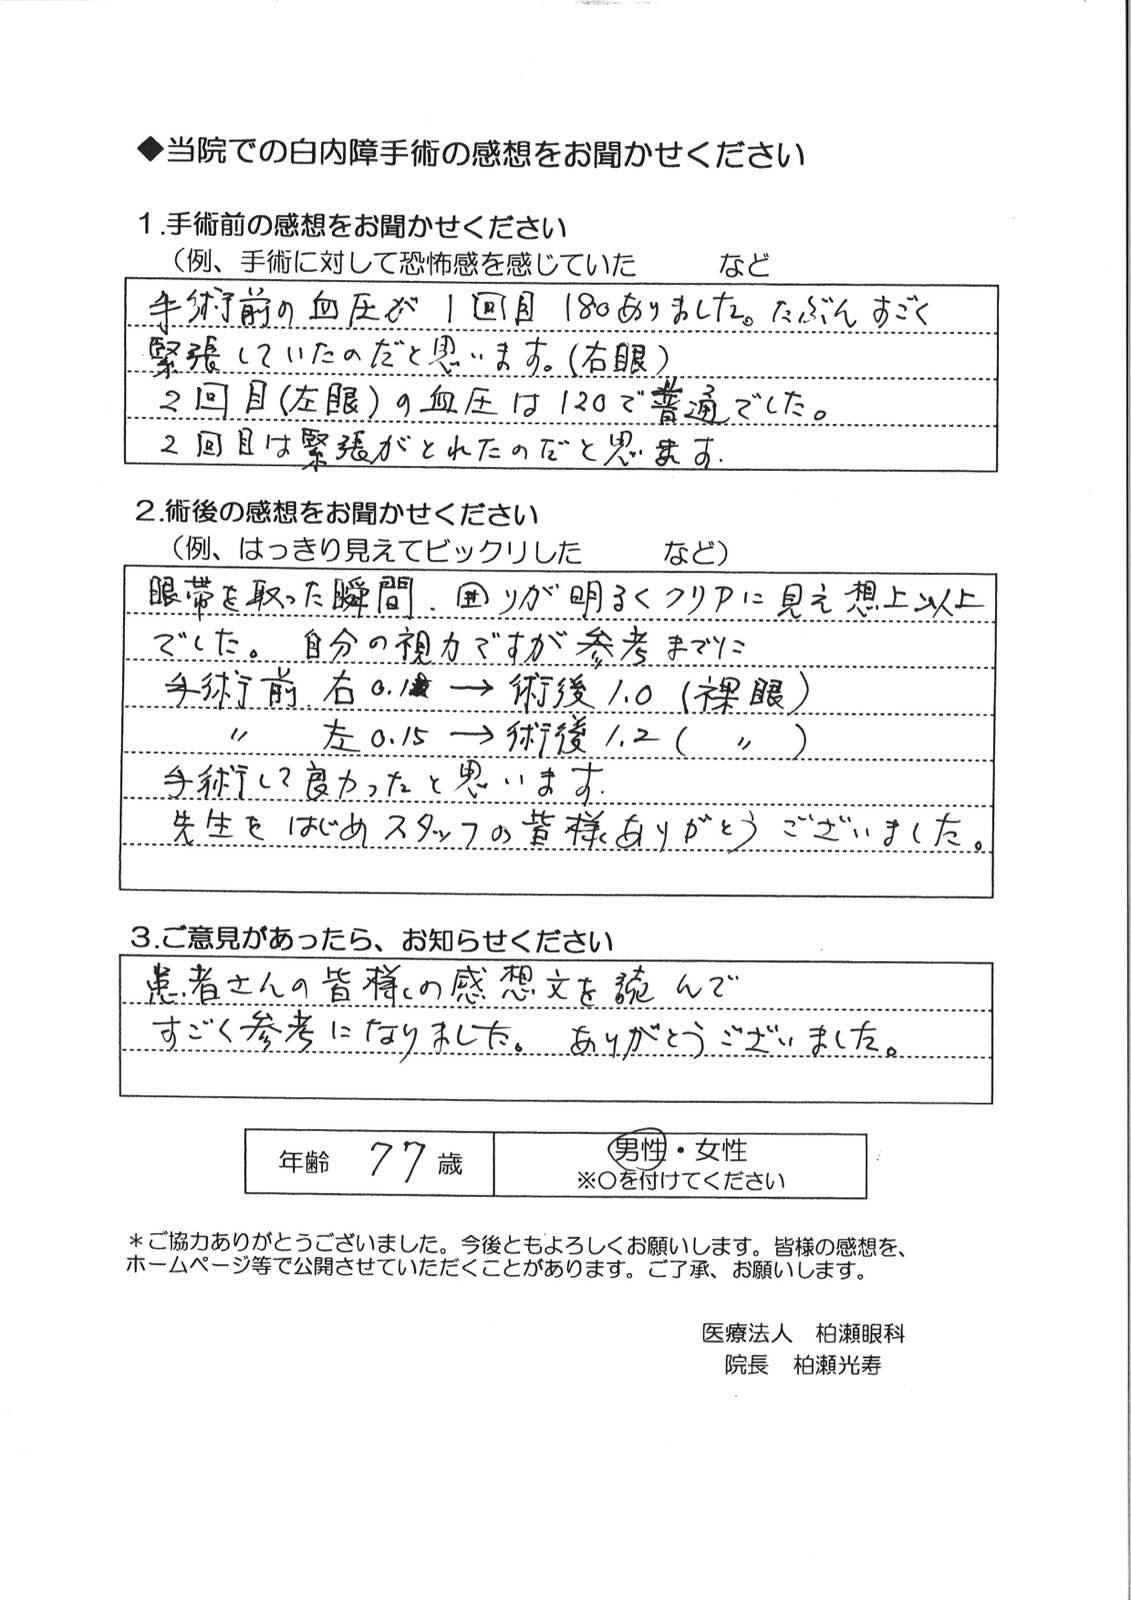 ◆当院での白内障手術の感想をお聞かせください
1.手術前の感想をお聞かせください
（例、手術に対して恐怖感を感じていた　　　など
手術前の血圧が1回目180ありました。たぶんすごく
緊張していたのだと思います。(右眼)
2回目(左眼)の血圧は120で普通でした。
2回目は緊張がとれたのだと思います.
2.術後の感想をお聞かせください
（例、はっきり見えてビックリした　　　など）
眼帯を取った瞬間、回りが明るくクリアに見え想上以上
でした。自分の視力ですが参考までに
手術前 右0.1 → 術後1.0 (裸眼)
〃 左0.15 → 術後1.2 ( 〃 )
手術して良かったと思います.
先生をはじめスタッフの皆様ありがとうございました。
3.ご意見があったら、お知らせください
患者さんの皆様の感想文を読んで
すごく参考になりました。ありがとうございました。
年齢 77歳 男性・女性
※〇を付けてください
＊ご協力ありがとうございました。今後ともよろしくお願いします。皆様の感想を、
ホームページ等で公開させていただくことがあります。ご了承、お願いします。
医療法人　柏瀬眼科
院長　柏瀬光寿